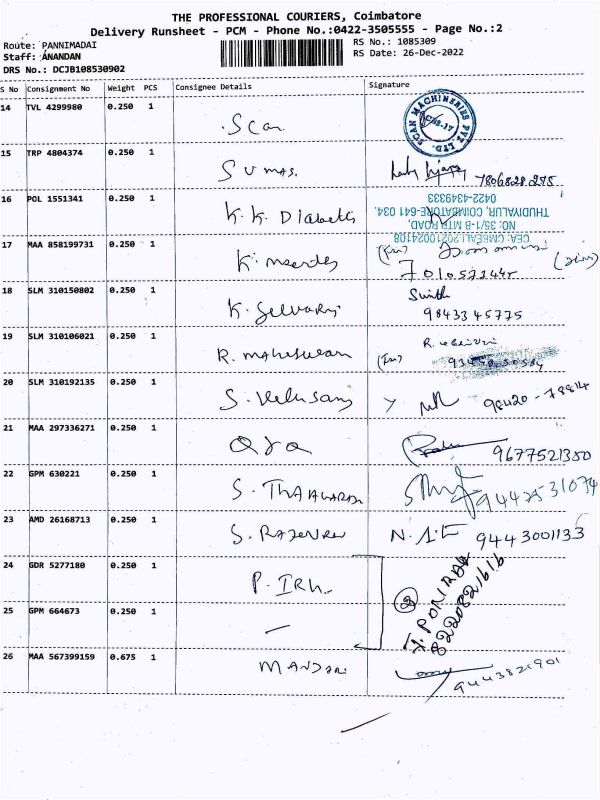 THE PROFESSIONAL COURIERS, Coimbatore
Delivery Runsheet - PCM - Phone No.:0422-3505555 - Page No.:2
Route: PANNIMADAI RS No.: 1085309
Staff: ANANDAN RS Date: 26-Dec-2022
DRS No.: DCJB108530902
S No Consignment No Weight PCS Consignee Details Signature
14 TVL 4299980 0.250 1 Scan
SCAN MACHINERIES PVT LTD.
15 TRP 4804374 0.250 1 SUMAS. 7806828275
16 POL 1551341 0.250 1 K.K. Diabetes
CEA: CMBEALI20210024108
NO: 35/1-B MTR ROAD,
THUDIYALUR, COIMBATORE-641 034.
0422-4349333
17 MAA 858199731 0.250 1 K.
18 SLM 310150802 0.250 1 K. Selvaraj
9843345775
19 SLM 310106021 0.250 1 R. Maheswaran
20 SLM 310192135 0.250 1 S. Velusamy 98420-78814
21 MAA 297336271 0.250 1 9677521350
22 GPM 630221 0.250 1 S. 9442531074
23 AMD 26168713 0.250 1 S. 9443001133
24 GDR 5277180 0.250 1 P.
25 GPM 664673 0.250 1 —
2
8220821616
26 MAA 567399159 0.675 1 9443821901